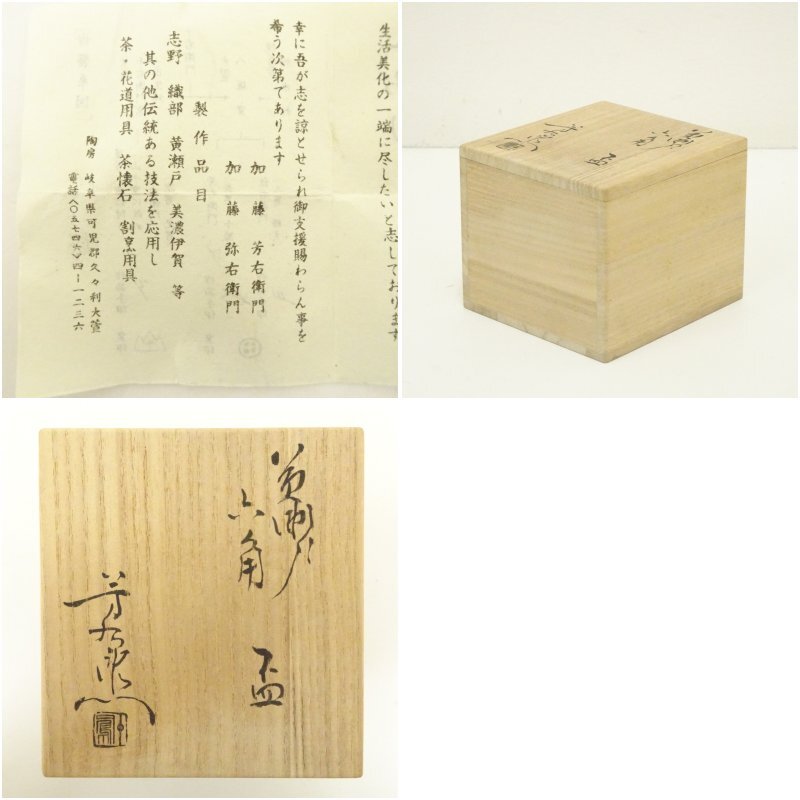 生活美化の一端に尽したいと志しております
幸に吾が志を諒とせられ御支援賜わらん事を
希う次第であります
加藤芳右衛門
加藤弥右衛門
製作品目
志野 織部 黄瀬戸 美濃伊賀 等
其の他伝統ある技法を応用し
茶・花道用具 茶懐石 割烹用具
陶房 岐阜県可児郡久々利大萱
電話(〇五七四六)四ー一二三六
黄瀬戸
六角
盃
芳右衛門